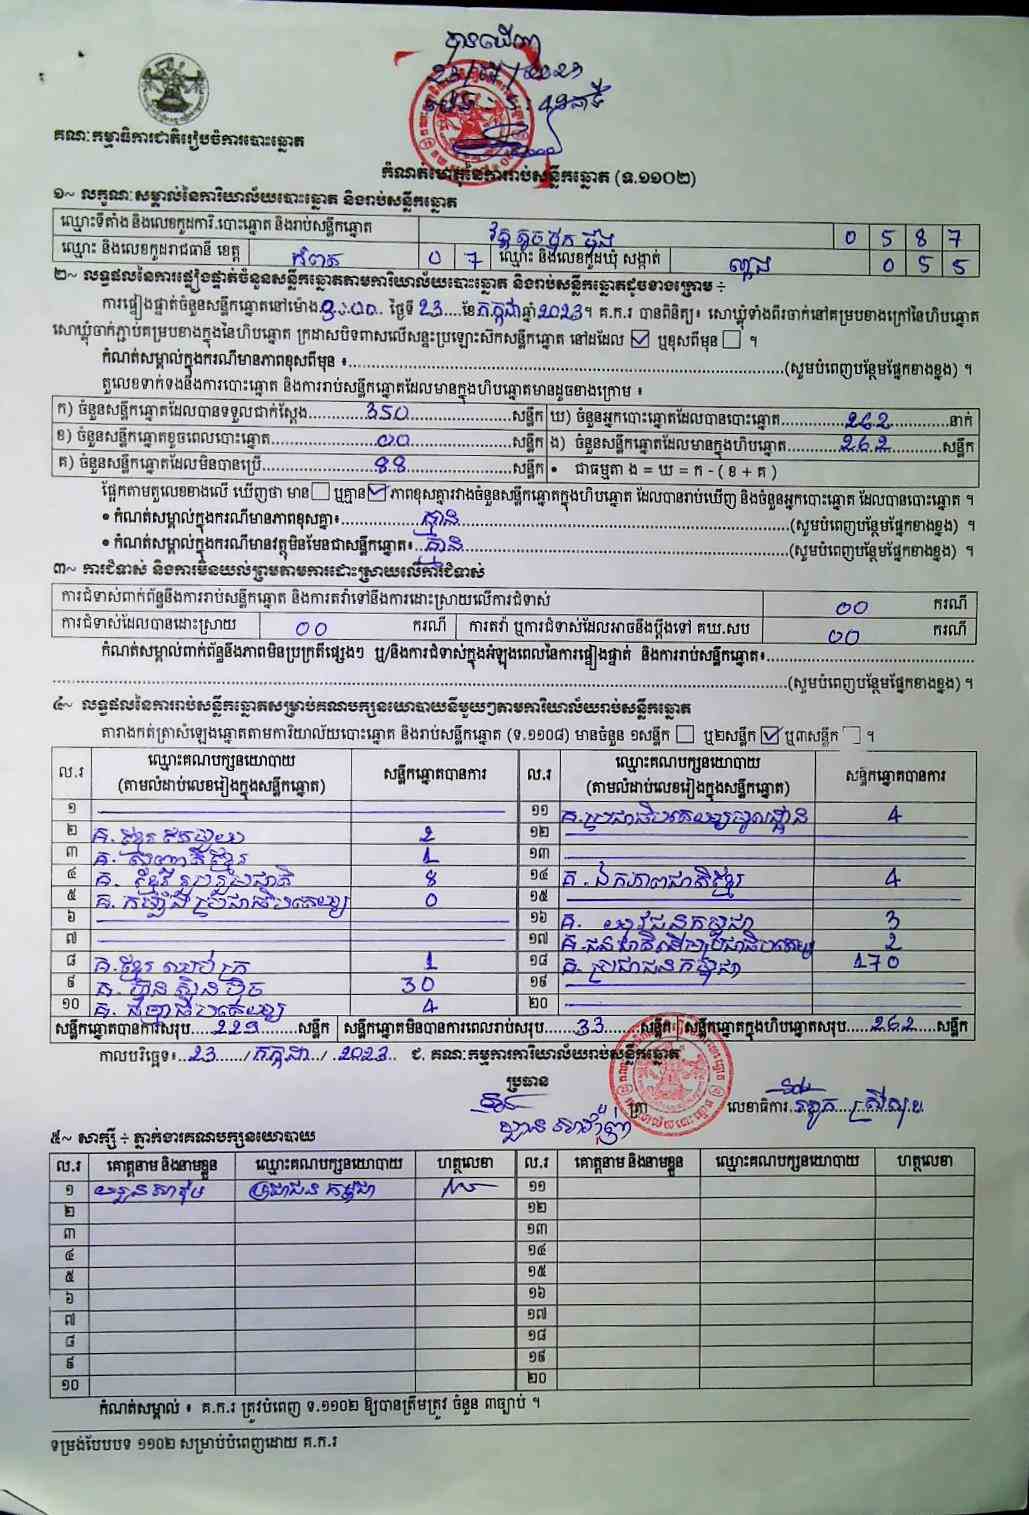 បានឃើញ
គណៈកម្មាធិការជាតិរៀបចំការបោះឆ្នោត
កំណត់ហេតុនៃការរាប់សន្លឹកឆ្នោត (ទ.១១០២)
១~ លក្ខណៈសម្គាល់នៃការិយាល័យបោះឆ្នោត និងរាប់សន្លឹកឆ្នោត
ឈ្មោះទីតាំង និងលេខកូដការិ.បោះឆ្នោត និងរាប់សន្លឹកឆ្នោត 0 5 8 7
ឈ្មោះ និងលេខកូដរាជធានី ខេត្ត កំពត 0 7 ឈ្មោះ និងលេខកូដឃុំ សង្កាត់ ល្អាង 0 5 5
២~ លទ្ធផលនៃការផ្ទៀងផ្ទាត់ចំនួនសន្លឹកឆ្នោតតាមការិយាល័យបោះឆ្នោត និងរាប់សន្លឹកឆ្នោតដូចខាងក្រោម ÷
ការផ្ទៀងផ្ទាត់ចំនួនសន្លឹកឆ្នោតនៅម៉ោង ថ្ងៃទី 23 ខែ កក្កដា ឆ្នាំ 2023។ គ.ក.រ បានពិនិត្យ៖ សោឃ្មុំទាំងពីរចាក់នៅគម្របខាងក្រៅនៃហិបឆ្នោត
សោឃ្មុំចាក់ភ្ជាប់គម្របខាងក្នុងនៃហិបឆ្នោត ក្រដាសបិទពាសលើសន្ទះប្រឡោះស៊កសន្លឹកឆ្នោត នៅដដែល ☑ ឬខុសពីមុន ☐ ។
កំណត់សម្គាល់ក្នុងករណីមានភាពខុសពីមុន ៖ (សូមបំពេញបន្ថែមផ្នែកខាងខ្នង) ។
តួលេខទាក់ទងនឹងការបោះឆ្នោត និងការរាប់សន្លឹកឆ្នោតដែលមានក្នុងហិបឆ្នោតមានដូចខាងក្រោម ៖
ក) ចំនួនសន្លឹកឆ្នោតដែលបានទទួលជាក់ស្តែង 350 សន្លឹក ឃ) ចំនួនអ្នកបោះឆ្នោតដែលបានបោះឆ្នោត 262 នាក់
ខ) ចំនួនសន្លឹកឆ្នោតខូចពេលបោះឆ្នោត 00 សន្លឹក ង) ចំនួនសន្លឹកឆ្នោតដែលមានក្នុងហិបឆ្នោត 262 សន្លឹក
គ) ចំនួនសន្លឹកឆ្នោតដែលមិនបានប្រើ 88 សន្លឹក • ជាធម្មតា ង = ឃ = ក - ( ខ + គ )
ផ្អែកតាមតួលេខខាងលើ ឃើញថា មាន ☐ ឬគ្មាន ☑ ភាពខុសគ្នារវាងចំនួនសន្លឹកឆ្នោតក្នុងហិបឆ្នោត ដែលបានរាប់ឃើញ និងចំនួនអ្នកបោះឆ្នោត ដែលបានបោះឆ្នោត ។
• កំណត់សម្គាល់ក្នុងករណីមានភាពខុសគ្នា៖ គ្មាន (សូមបំពេញបន្ថែមផ្នែកខាងខ្នង) ។
• កំណត់សម្គាល់ក្នុងករណីមានវត្ថុមិនមែនជាសន្លឹកឆ្នោត៖ គ្មាន (សូមបំពេញបន្ថែមផ្នែកខាងខ្នង) ។
៣~ ការជំទាស់ និងការមិនយល់ព្រមតាមការដោះស្រាយលើការជំទាស់
ការជំទាស់ពាក់ព័ន្ធនឹងការរាប់សន្លឹកឆ្នោត និងការតវ៉ាទៅនឹងការដោះស្រាយលើការជំទាស់ 00 ករណី
ការជំទាស់ដែលបានដោះស្រាយ 00 ករណី ការតវ៉ា ឬការជំទាស់ដែលអាចនឹងប្តឹងទៅ គឃ.សប 00 ករណី
កំណត់សម្គាល់ពាក់ព័ន្ធនឹងភាពមិនប្រក្រតីផ្សេងៗ ឬ/និងការជំទាស់ក្នុងអំឡុងពេលនៃការផ្ទៀងផ្ទាត់ និងការរាប់សន្លឹកឆ្នោត៖
(សូមបំពេញបន្ថែមផ្នែកខាងខ្នង) ។
៤~ លទ្ធផលនៃការរាប់សន្លឹកឆ្នោតសម្រាប់គណបក្សនយោបាយនីមួយៗតាមការិយាល័យរាប់សន្លឹកឆ្នោត
តារាងកត់ត្រាសំឡេងឆ្នោតតាមការិយាល័យបោះឆ្នោត និងរាប់សន្លឹកឆ្នោត (ទ.១១០៨) មានចំនួន ១សន្លឹក ☐ ឬ២សន្លឹក ☑ ឬ៣សន្លឹក ☐ ។
ល.រ ឈ្មោះគណបក្សនយោបាយ (តាមលំដាប់លេខរៀងក្នុងសន្លឹកឆ្នោត) សន្លឹកឆ្នោតបានការ ល.រ ឈ្មោះគណបក្សនយោបាយ (តាមលំដាប់លេខរៀងក្នុងសន្លឹកឆ្នោត) សន្លឹកឆ្នោតបានការ
១ ១១ គ.ប្រជាធិបតេយ្យមូលដ្ឋាន 4
២ គ. ខ្មែរឯកភ្លើង 2 ១២
៣ គ. សញ្ជាតិខ្មែរ 1 ១៣
៤ គ. ខ្មែររួបរួមជាតិ 8 ១៤ គ. ឯកភាពជាតិខ្មែរ 4
៥ គ. កម្លាំងប្រជាធិបតេយ្យ 0 ១៥
៦ ១៦ គ. យុវជនកម្ពុជា 3
៧ ១៧ គ.ជនជាតិដើមប្រជាធិបតេយ្យ 2
៨ គ.ខ្មែរឈប់ក្រ 1 ១៨ គ. ប្រជាជនកម្ពុជា 170
៩ គ. ហ៊្វុនស៊ិនប៉ិច 30 ១៩
១០ គ. ឃ្មុំប្រជាធិបតេយ្យ 4 ២០
សន្លឹកឆ្នោតបានការសរុប 229 សន្លឹក សន្លឹកឆ្នោតមិនបានការពេលរាប់សរុប 33 សន្លឹក សន្លឹកឆ្នោតក្នុងហិបឆ្នោតសរុប 262 សន្លឹក
កាលបរិច្ឆេទ៖ 23 / កក្កដា / 2023 ជ. គណៈកម្មការការិយាល័យរាប់សន្លឹកឆ្នោត
ប្រធាន
ត្រា លេខាធិការ
៥~ សាក្សី ÷ ភ្នាក់ងារគណបក្សនយោបាយ
ល.រ គោត្តនាម និងនាមខ្លួន ឈ្មោះគណបក្សនយោបាយ ហត្ថលេខា ល.រ គោត្តនាម និងនាមខ្លួន ឈ្មោះគណបក្សនយោបាយ ហត្ថលេខា
១ ប្រជាជនកម្ពុជា ១១
២ ១២
៣ ១៣
៤ ១៤
៥ ១៥
៦ ១៦
៧ ១៧
៨ ១៨
៩ ១៩
១០ ២០
កំណត់សម្គាល់ ៖ គ.ក.រ ត្រូវបំពេញ ទ.១១០២ ឱ្យបានត្រឹមត្រូវ ចំនួន ៣ច្បាប់ ។
ទម្រង់បែបបទ ១១០២ សម្រាប់បំពេញដោយ គ.ក.រ